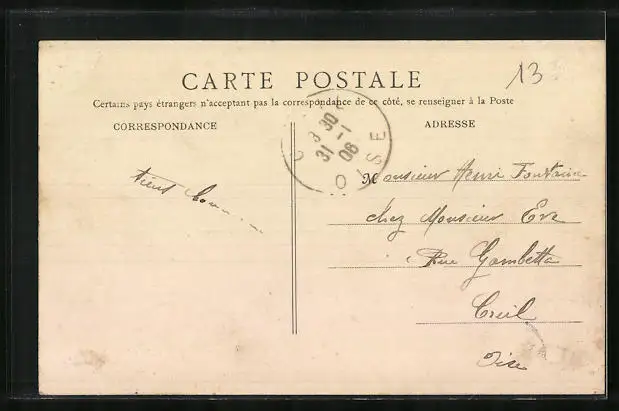 13
CARTE POSTALE
Certains pays étrangers n'acceptant pas la correspondance de ce côté, se renseigner à la Poste
CORRESPONDANCE
ADRESSE
8 30
31 -1
06
OISE
Monsieur Henri Fontaine
chez Monsieur Eve
Rue Gambetta
Creil
Oise